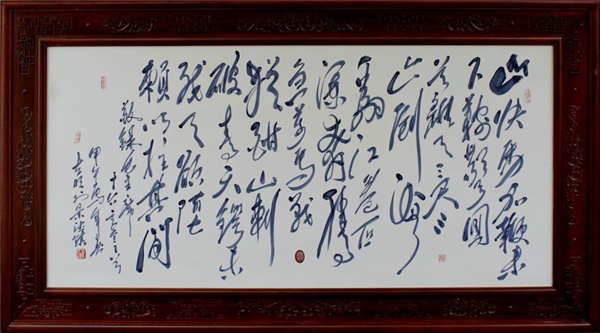 山快马加鞭未
下鞍驚回
首離天三尺三
山倒海
翻江卷巨
澜奔腾
急萬馬战
犹酣山刺
破青天锷未
残天欲堕
賴以拄其间
敬録毛主席
十六字令三首
甲午馬年春